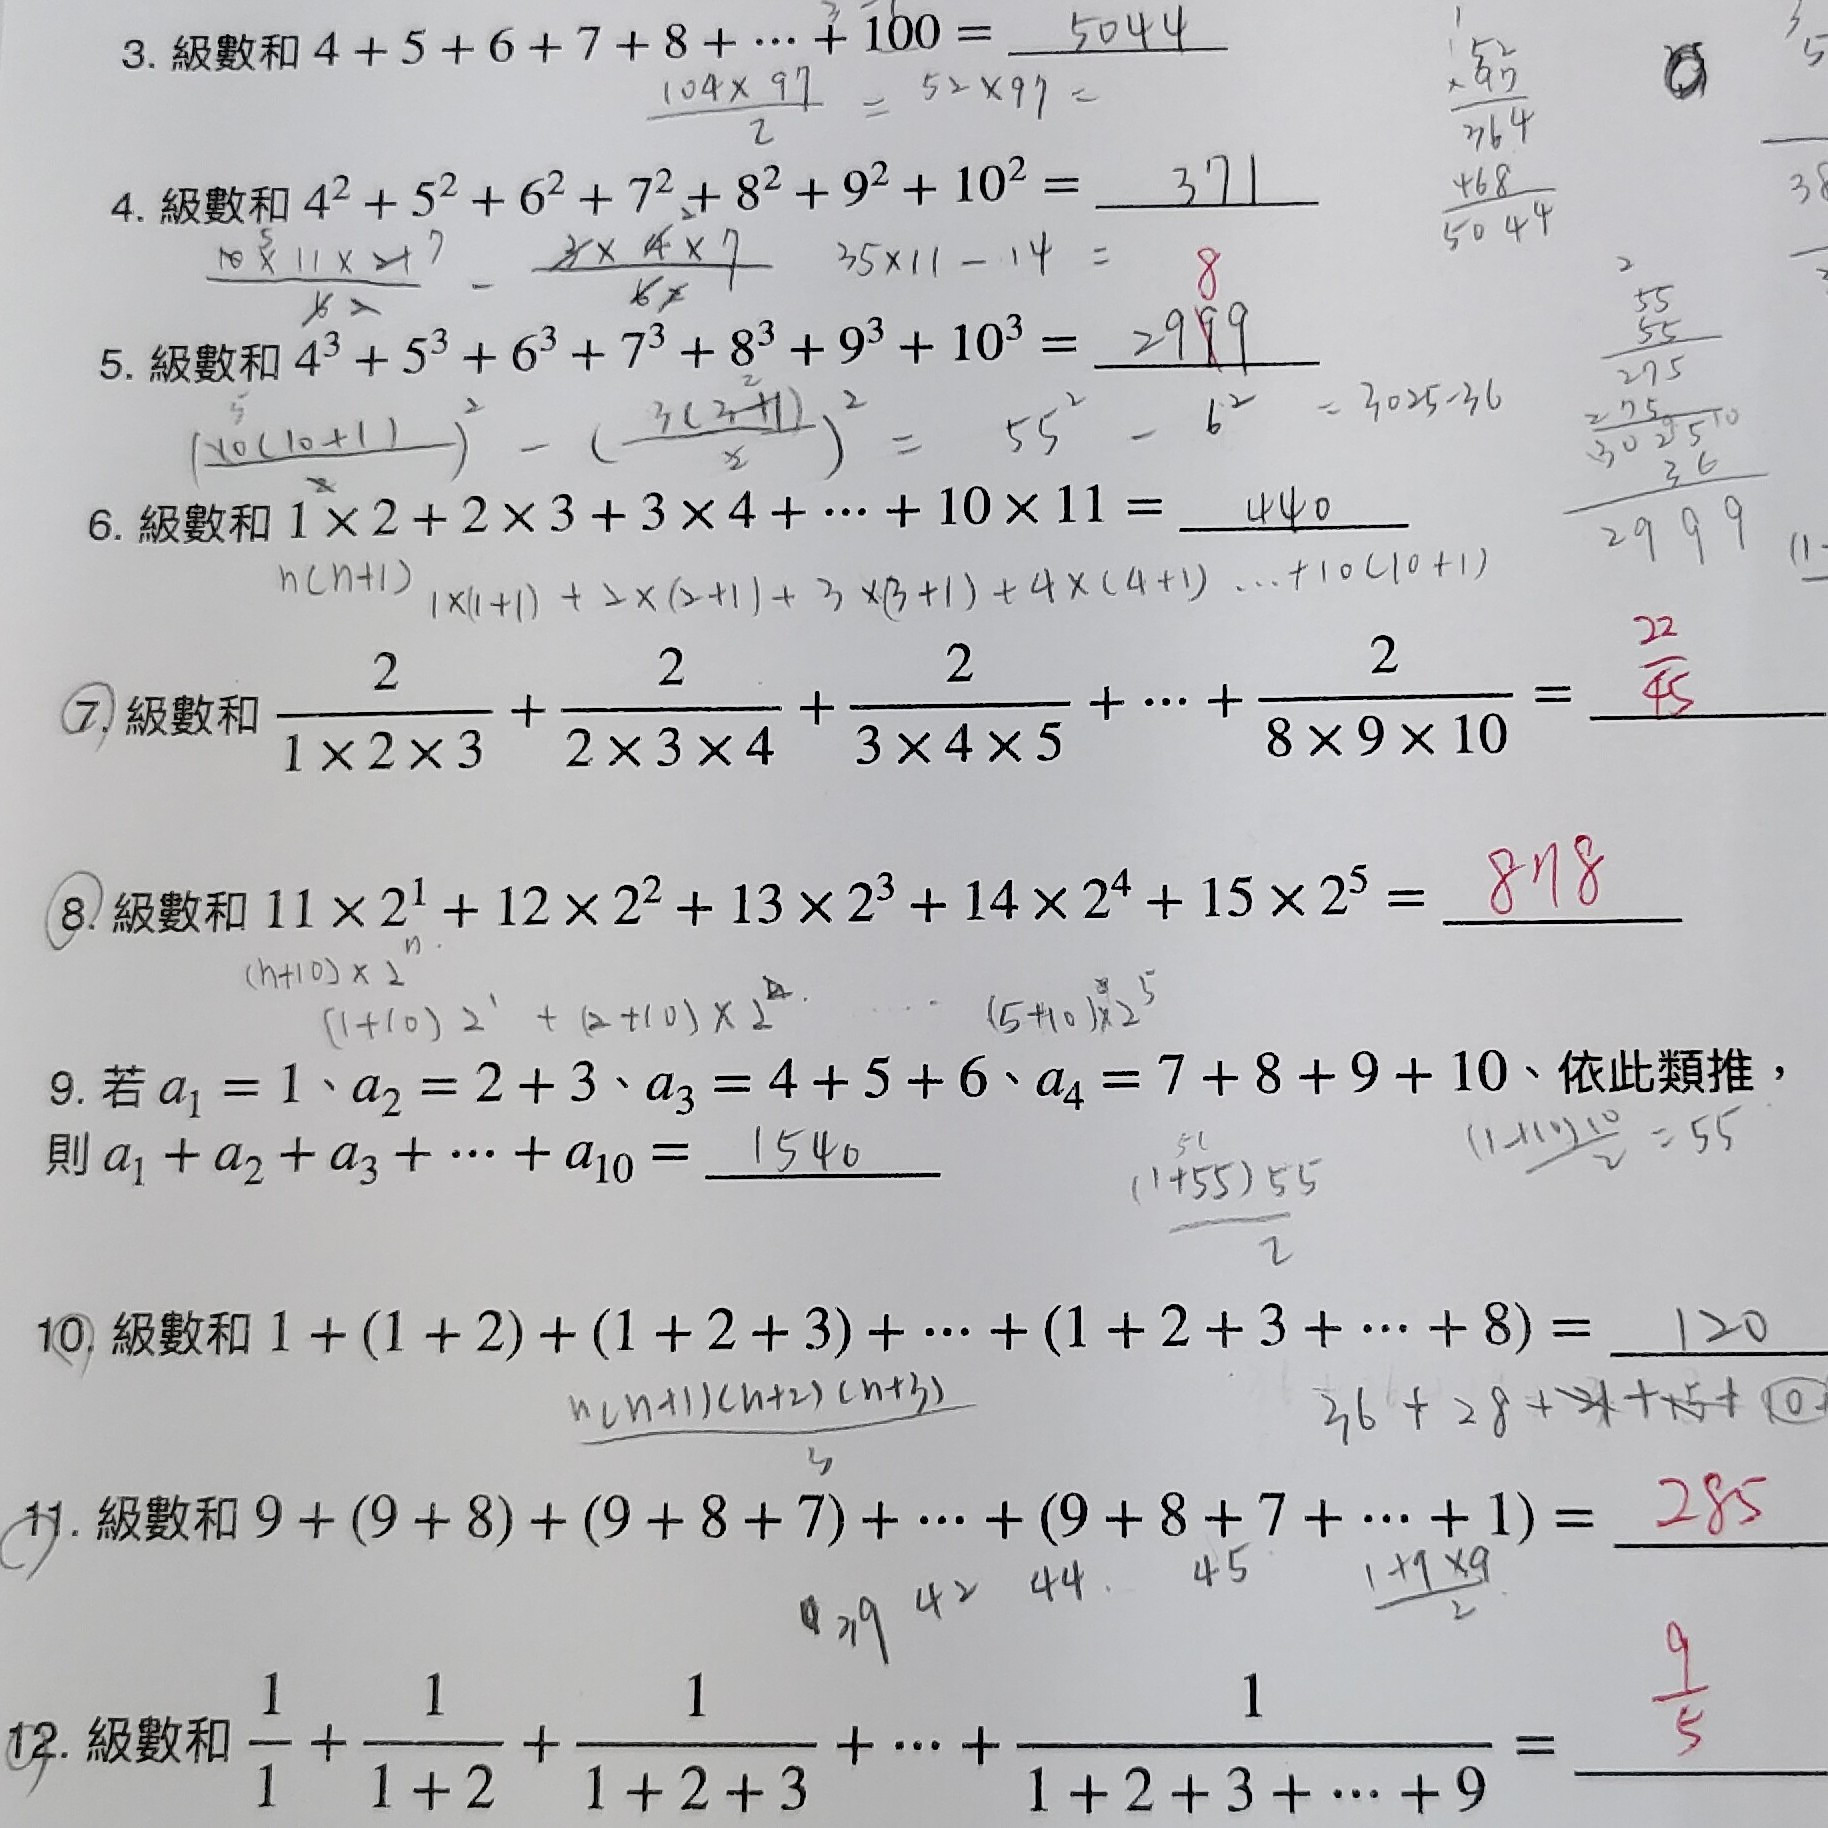 3. 級數和 4 + 5 + 6 + 7 + 8 + ⋯ + 100 = 5044
104 × 97 / 2 = 52 × 97 =
52
× 97
364
468
5044
4. 級數和 4² + 5² + 6² + 7² + 8² + 9² + 10² = 371
35×11 − 14 =
8
5. 級數和 4³ + 5³ + 6³ + 7³ + 8³ + 9³ + 10³ = 2999
(10(10+1) / 2)² − (3(3+1) / 2)² = 55² − 6² = 3025-36
55
55
275
275
3025
36
2999
6. 級數和 1 × 2 + 2 × 3 + 3 × 4 + ⋯ + 10 × 11 = 440
n(n+1) 1×(1+1) + 2×(2+1) + 3×(3+1) + 4×(4+1) ... +10(10+1)
7. 級數和 2/(1 × 2 × 3) + 2/(2 × 3 × 4) + 2/(3 × 4 × 5) + ⋯ + 2/(8 × 9 × 10) = 22/45
8. 級數和 11 × 2¹ + 12 × 2² + 13 × 2³ + 14 × 2⁴ + 15 × 2⁵ = 878
(n+10) × 2ⁿ
(1+10) 2¹ + (2+10) × 2² .... (5+10)×2⁵
9. 若 a₁ = 1、a₂ = 2 + 3、a₃ = 4 + 5 + 6、a₄ = 7 + 8 + 9 + 10、依此類推，
則 a₁ + a₂ + a₃ + ⋯ + a₁₀ = 1540
(1+10)10 / 2 = 55
(1+55)55 / 2
10. 級數和 1 + (1 + 2) + (1 + 2 + 3) + ⋯ + (1 + 2 + 3 + ⋯ + 8) = 120
n(n+1)(n+2)(n+3) / 3
36 + 28 + 21 + 15 + 10
11. 級數和 9 + (9 + 8) + (9 + 8 + 7) + ⋯ + (9 + 8 + 7 + ⋯ + 1) = 285
39 42 44 45 1+9×9 / 2
12. 級數和 1/1 + 1/(1 + 2) + 1/(1 + 2 + 3) + ⋯ + 1/(1 + 2 + 3 + ⋯ + 9) = 9/5